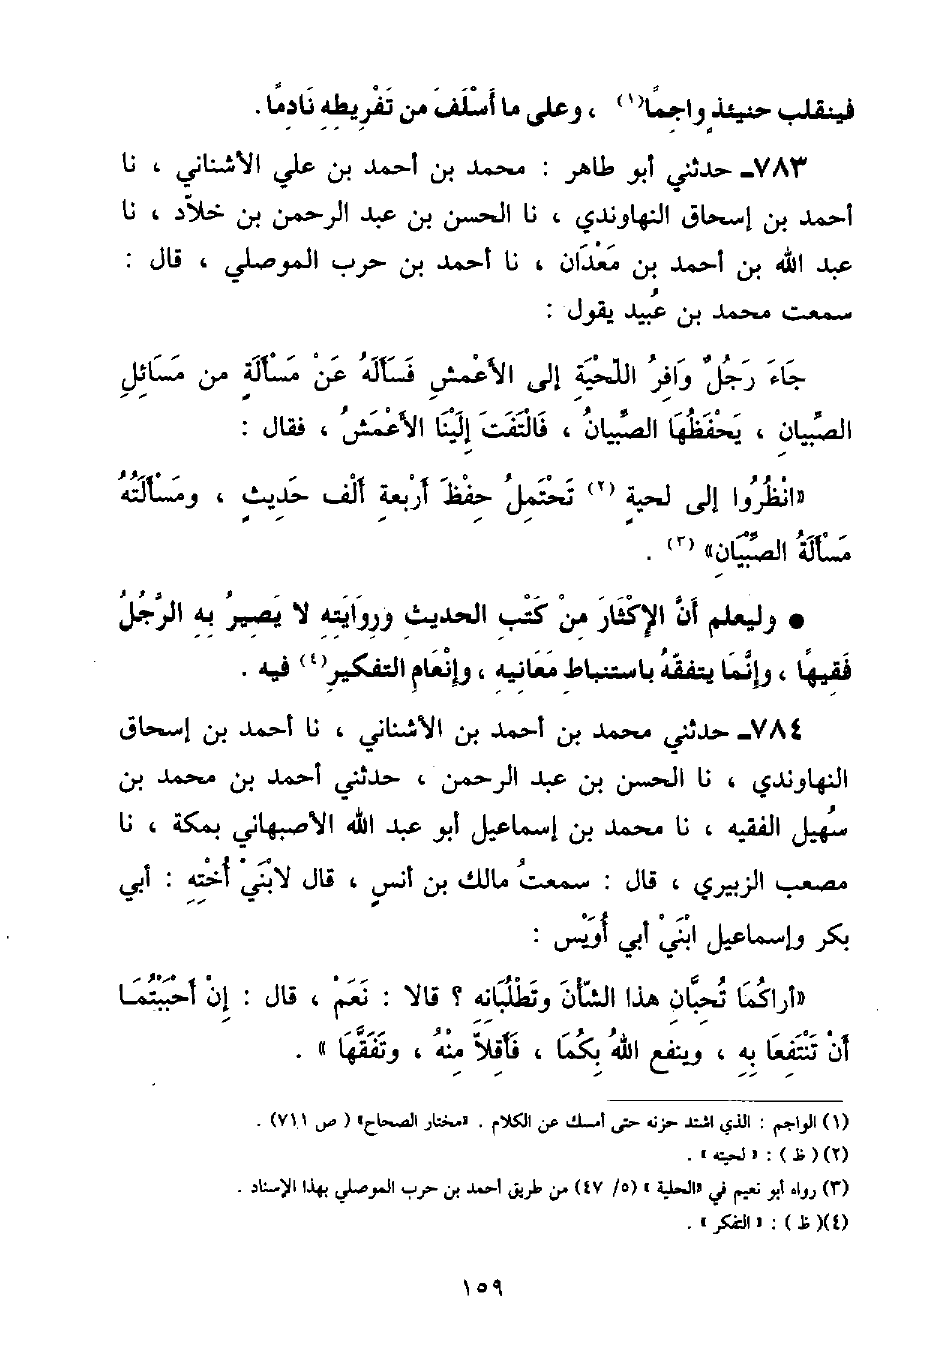 فينقلب حنيئذٍ واجِمًا(١) ، وعلى ما أَسْلَفَ من تَفْرِيطِهِ نَادِمًا.
٧٨٣ـ حدثني أبو طاهر : محمد بن أحمد بن علي الأشناني ، نا
أحمد بن إسحاق النهاوندي ، نا الحسن بن عبد الرحمن بن خلاّد ، نا
عبد الله بن أحمد بن مَعْدَان ، نا أحمد بن حرب الموصلي ، قال :
سمعت محمد بن عُبيد يقول :
جَاءَ رَجُلٌ وَافِرُ اللّحْيَةِ إلى الأَعْمشِ فَسَأَلَهُ عَنْ مَسْأَلَةٍ من مَسَائِلِ
الصِّبيانِ ، يَحْفَظُهَا الصِّبيانُ ، فَالْتَفَتَ إِلَيْنَا الأَعْمَشُ ، فقال :
«انْظُرُوا إلى لحيةٍ (٢) تَحْتَمِلُ حِفْظَ أَرْبعةِ أَلْف حَدِيثٍ ، ومَسْأَلَتُهُ
مَسْأَلَةُ الصِّبْيَانِ» (٣) .
● وليعلم أَنَّ الإِكْثَارَ مِنْ كَتْبِ الحديث وروَايَتِهِ لا يَصيرُ بِهِ الرَّجُلُ
فَقِيهًا ، وإِنَّمَا يتفقّهُ باستنباطِ مَعَانِيهِ ، وإِنْعَامِ التفكيرِ(٤) فيه .
٧٨٤ـ حدثني محمد بن أحمد بن الأشناني ، نا أحمد بن إسحاق
النهاوندي ، نا الحسن بن عبد الرحمن ، حدثني أحمد بن محمد بن
سُهيل الفقيه ، نا محمد بن إسماعيل أبو عبد الله الأصبهاني بمكة ، نا
مصعب الزبيري ، قال : سمعتُ مالك بن أنسٍ ، قال لابْنَيْ أُخْتِهِ : أبي
بكر وإسماعيل ابْنَيْ أبي أُوَيْس :
«أراكُمَا تُحبَّان هذا الشّأنَ وتَطْلُبَانِهِ ؟ قالا : نَعَمْ ، قال : إِنْ أَحْبَبْتُمَا
أَنْ تَنْتَفِعَا بِهِ ، وينفع اللهُ بِكُمَا ، فَأَقِلاَّ مِنْهُ ، وتَفَقَّهَا » .
(١) الواجم : الذي اشتد حزنه حتى أمسك عن الكلام . «مختار الصحاح» ( ص ٧١١) .
(٢) ( ظ ) : « لحيته » .
(٣) رواه أبو نعيم في «الحلية » (٥/ ٤٧) من طريق أحمد بن حرب الموصلي بهذا الإسناد .
(٤)( ظ ) : « التفكر » .
١٥٩